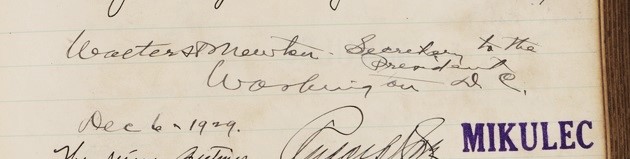 Walter H Newton. Secretary to the
President
Washington D C.
Dec 6 - 1929.
MIKULEC